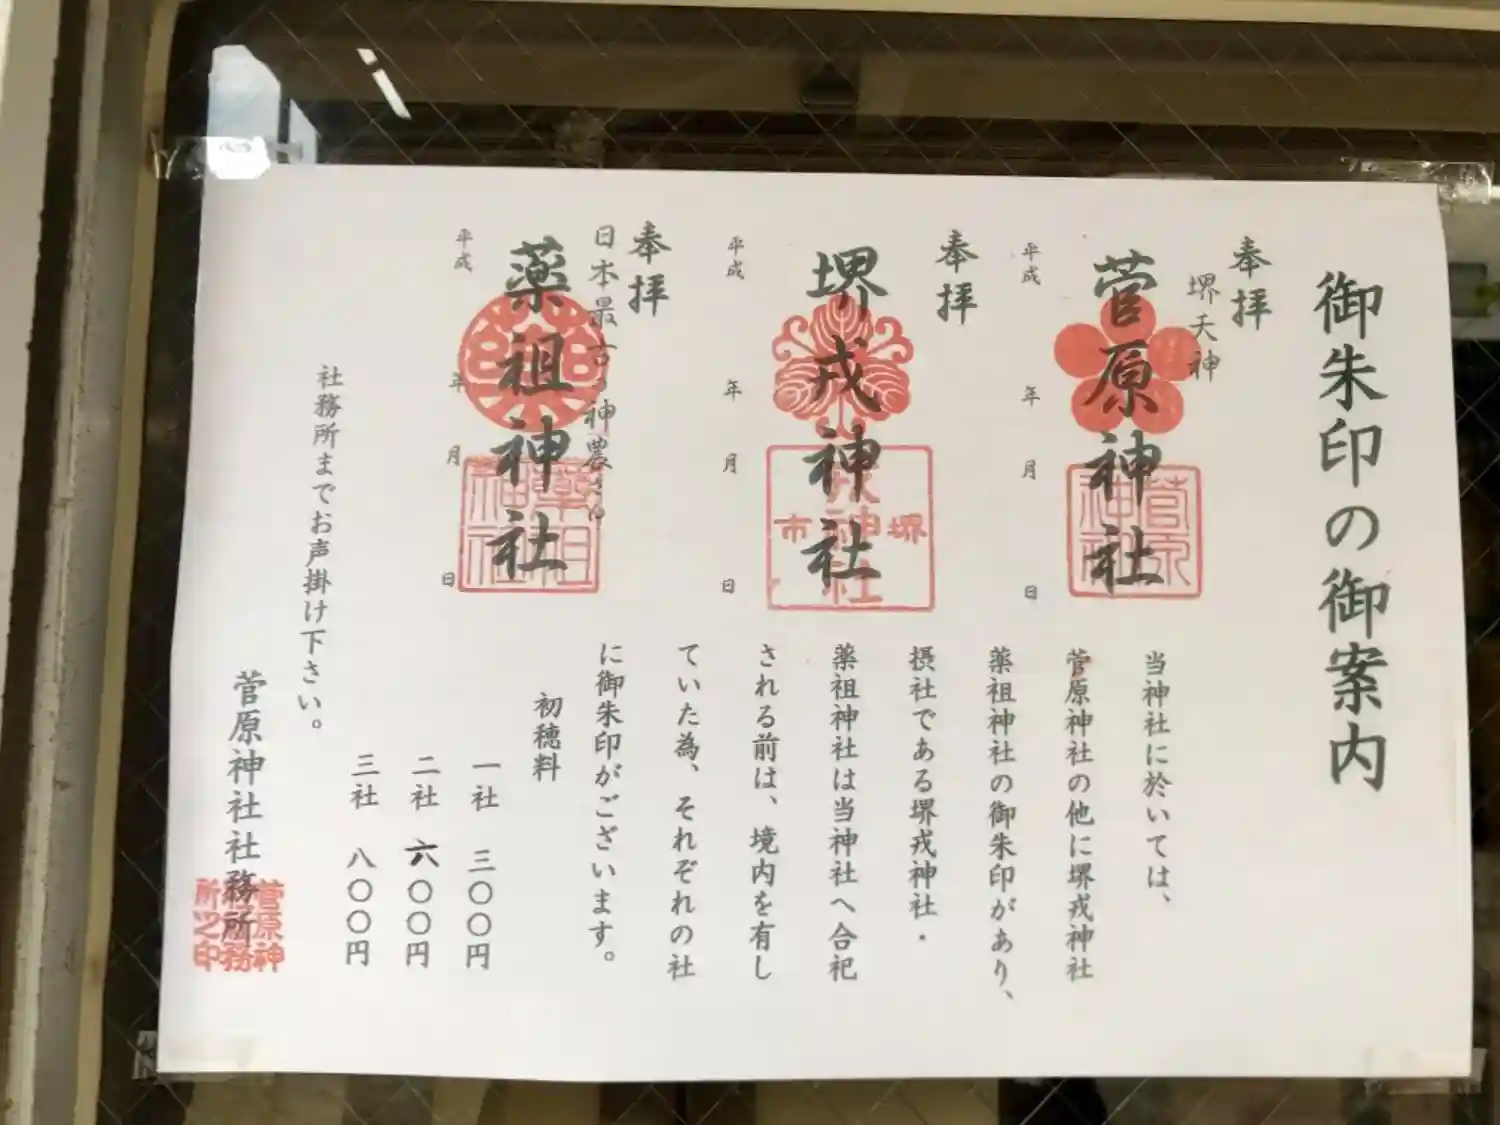 御朱印の御案内
奉拝
堺天神
菅原神社
菅原神社
平成 年 月 日
奉拝
堺戎神社
堺市
戎神社
平成 年 月 日
奉拝
日本最古の神農さん
薬祖神社
薬祖神社
平成 年 月 日
当神社に於いては、
菅原神社の他に堺戎神社
薬祖神社の御朱印があり、
摂社である堺戎神社・
薬祖神社は当神社へ合祀
される前は、境内を有し
ていた為、それぞれの社
に御朱印がございます。
初穂料
一社 三〇〇円
二社 六〇〇円
三社 八〇〇円
社務所までお声掛け下さい。
菅原神社社務所
菅原神
社務
所之印